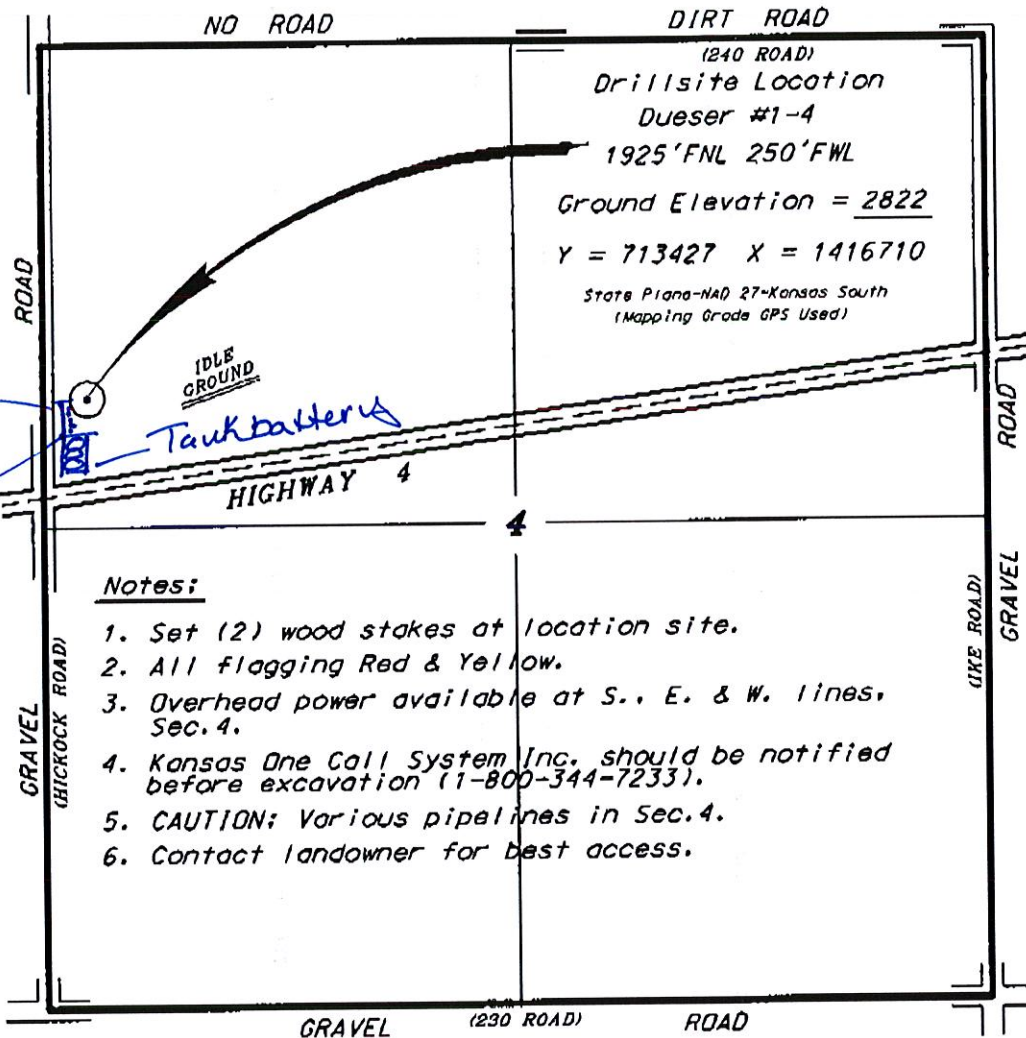 NO ROAD
DIRT ROAD
(240 ROAD)
Drillsite Location
Dueser #1-4
1925'FNL 250'FWL
Ground Elevation = 2822
Y = 713427 X = 1416710
State Plane-NAD 27-Kansas South
(Mapping Grade GPS Used)
ROAD
IDLE
GROUND
Tank battery
HIGHWAY 4
ROAD
4
Notes:
1. Set (2) wood stakes at location site.
2. All flagging Red & Yellow.
3. Overhead power available at S., E. & W. lines,
Sec.4.
4. Kansas One Call System Inc. should be notified
before excavation (1-800-344-7233).
5. CAUTION: Various pipelines in Sec.4.
6. Contact landowner for best access.
GRAVEL
(HICKOCK ROAD)
(IKE ROAD)
GRAVEL
GRAVEL (230 ROAD) ROAD